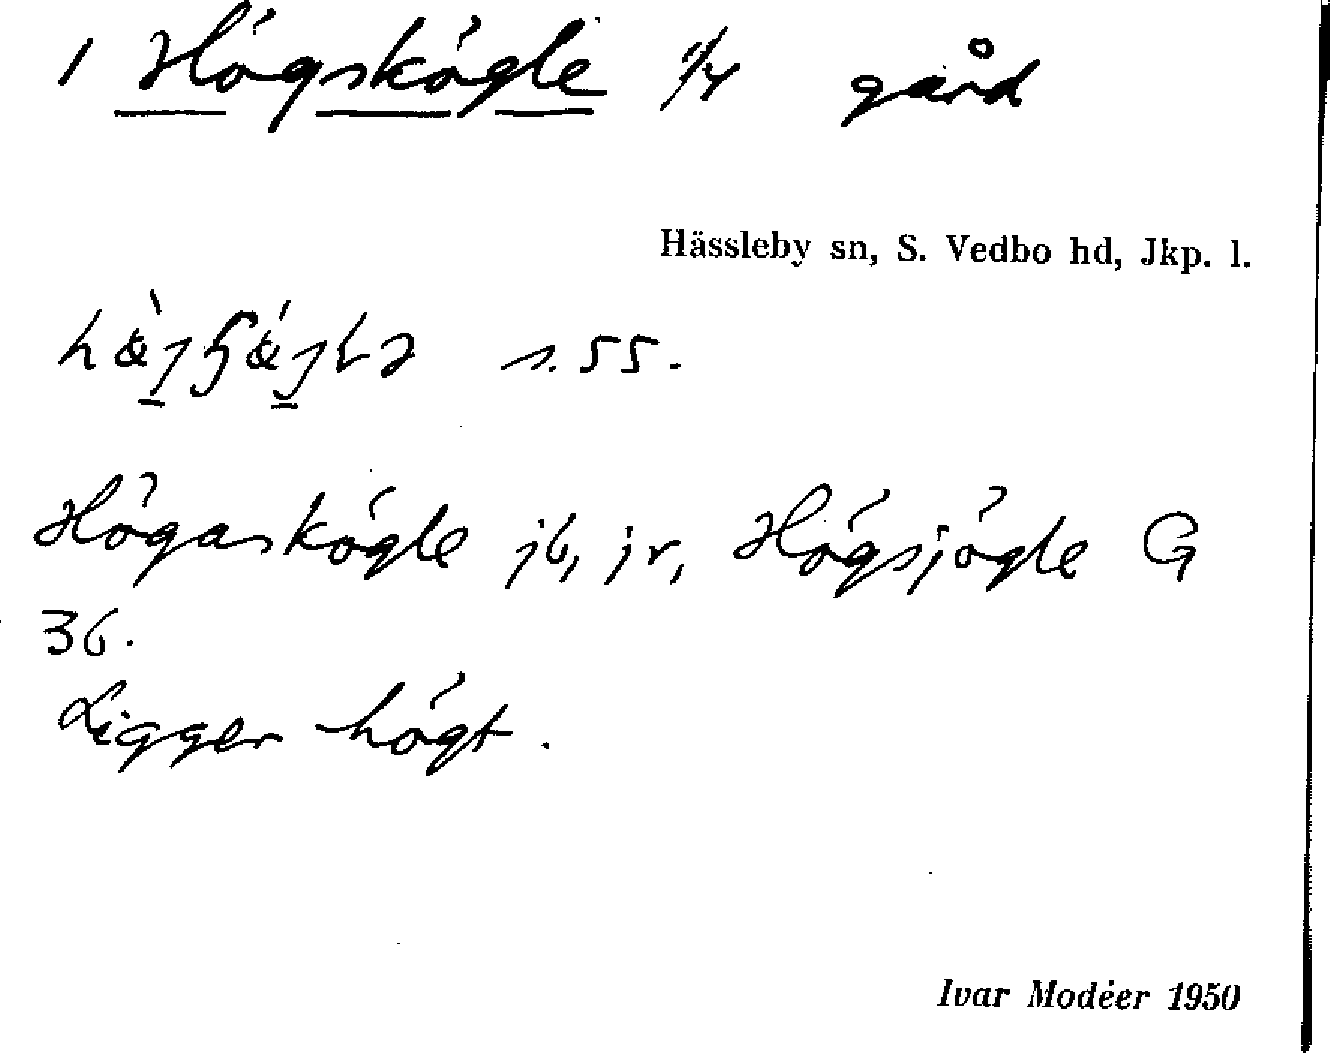 1 Högskögle 1/4 gård
Hässleby sn, S. Vedbo hd, Jkp. l.
s. 55.
Högaskögle jb, jr, Högsjögle G
36.
Ligger högt.
Ivar Modéer 1950